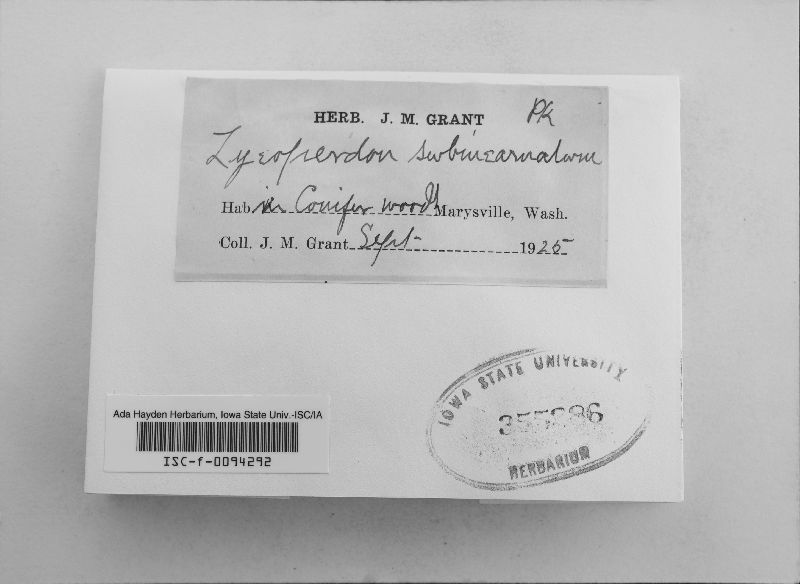 HERB. J. M. GRANT Pk
Lycoperdon subincarnatum
Hab in Conifer woods Marysville, Wash.
Coll. J. M. Grant Sept- 1925
Ada Hayden Herbarium, Iowa State Univ.-ISC/IA
ISC-f-0094292
IOWA STATE UNIVERSITY
HERBARIUM